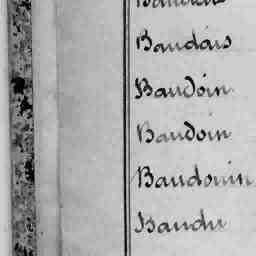 Baudais
Baudoin
Baudoin
Baudouin
Baudu